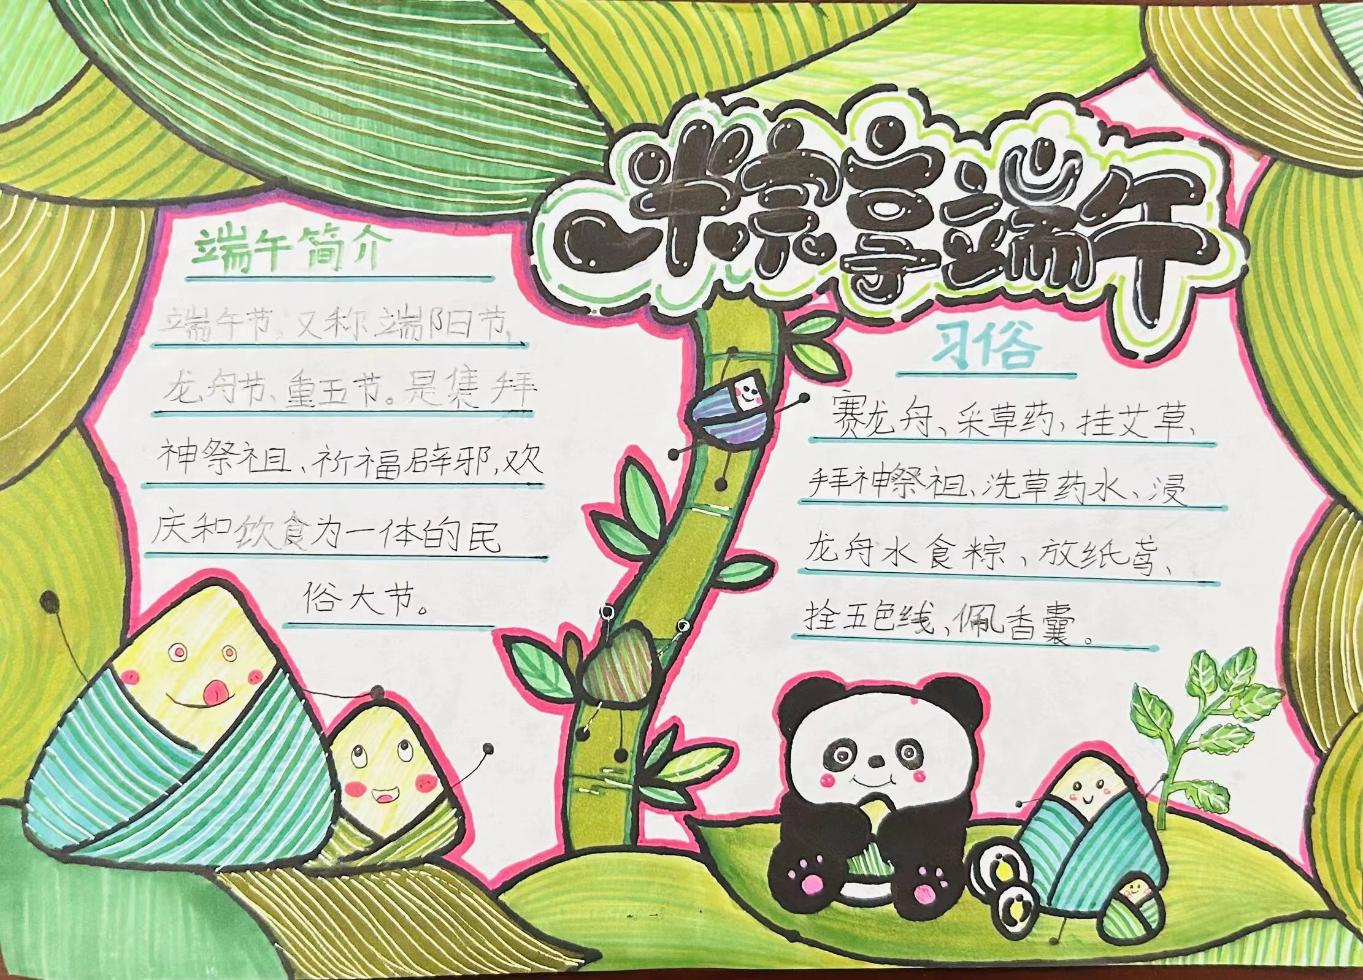 一粽享端午
端午简介
端午节,又称端阳节,
龙舟节、重五节。是集拜
神祭祖、祈福辟邪,欢
庆和饮食为一体的民
俗大节。
习俗
赛龙舟、采草药、挂艾草、
拜神祭祖、洗草药水、浸
龙舟水食粽、放纸鸢、
拴五色线、佩香囊。